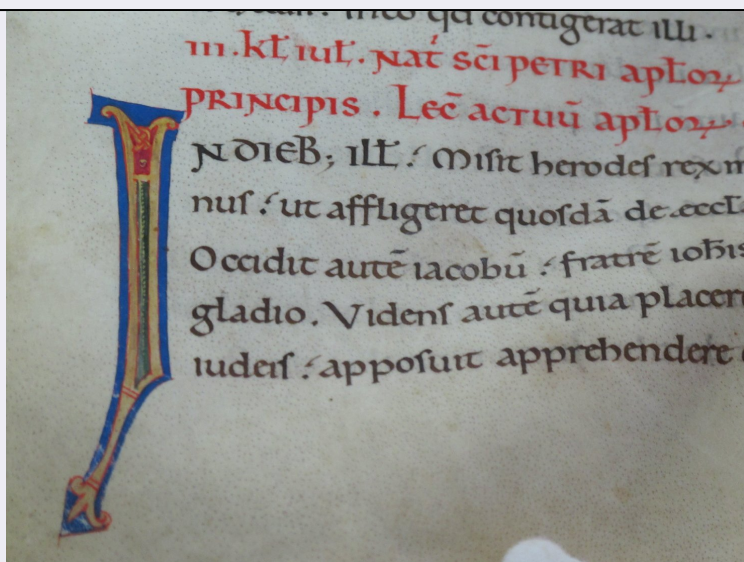 qd contigerat illi.
iii. kƚ iuƚ. Nat́ sc̄i petri apƚoꝝ
principis. Lec̄ actuū apƚoꝝ
I
N DIEB; ILƚ. Misit herodes rex m
nus. ut affligeret quosdā de eccƚ
Occidit autē iacobū. fratrē ioħis
gladio. Videns autē quia placer
iudeis. apposuit apprehendere